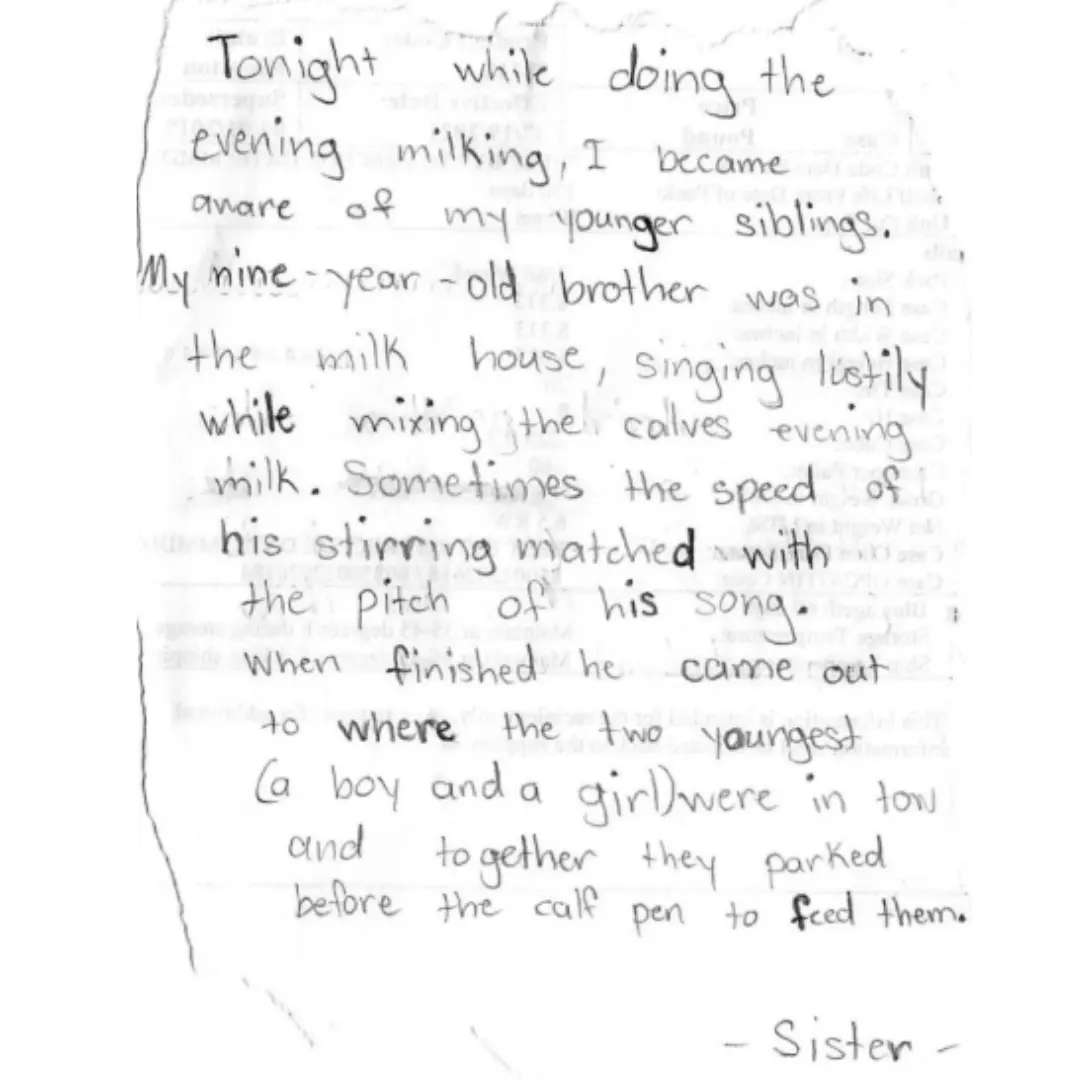 Tonight while doing the
evening milking, I became
aware of my younger siblings.
My nine-year-old brother was in
the milk house, singing lustily
while mixing the calves evening
milk. Sometimes the speed of
his stirring matched with
the pitch of his song.
When finished he came out
to where the two youngest
(a boy and a girl) were in tow
and together they parked
before the calf pen to feed them.
- Sister -